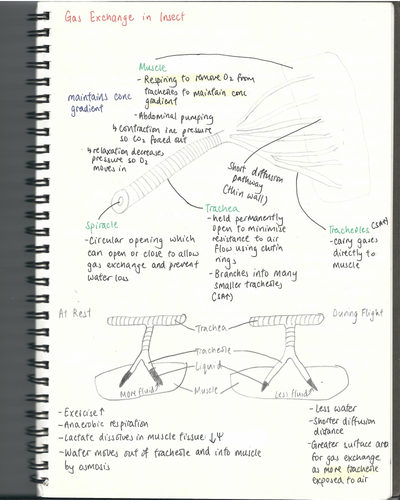 Gas Exchange in Insect
Muscle
- Respiring to remove O2 from
tracheoles to maintain conc
gradient
- Abdominal pumping
↳ contraction inc pressure
so CO2 forced out
↳ relaxation decreases
pressure so O2
moves in
maintains conc
gradient
Short diffusion
pathway
(thin wall)
Spiracle
- Circular opening which
can open or close to allow
gas exchange and prevent
water loss
Trachea
- held permanently
open to minimise
resistance to air
flow using chitin
rings
- Branches into many
smaller tracheoles
(SAT)
Tracheoles (SAT)
- carry gases
directly to
muscle
At Rest
During Flight
Trachea
Tracheole
Liquid
Muscle
More fluid
Less fluid
- Exercise ↑
- Anaerobic respiration
- Lactate dissolves in muscle tissue ↓Ψ
- Water moves out of tracheole and into muscle
by osmosis
- Less water
- Shorter diffusion
distance
- Greater surface area
for gas exchange
as more tracheole
exposed to air